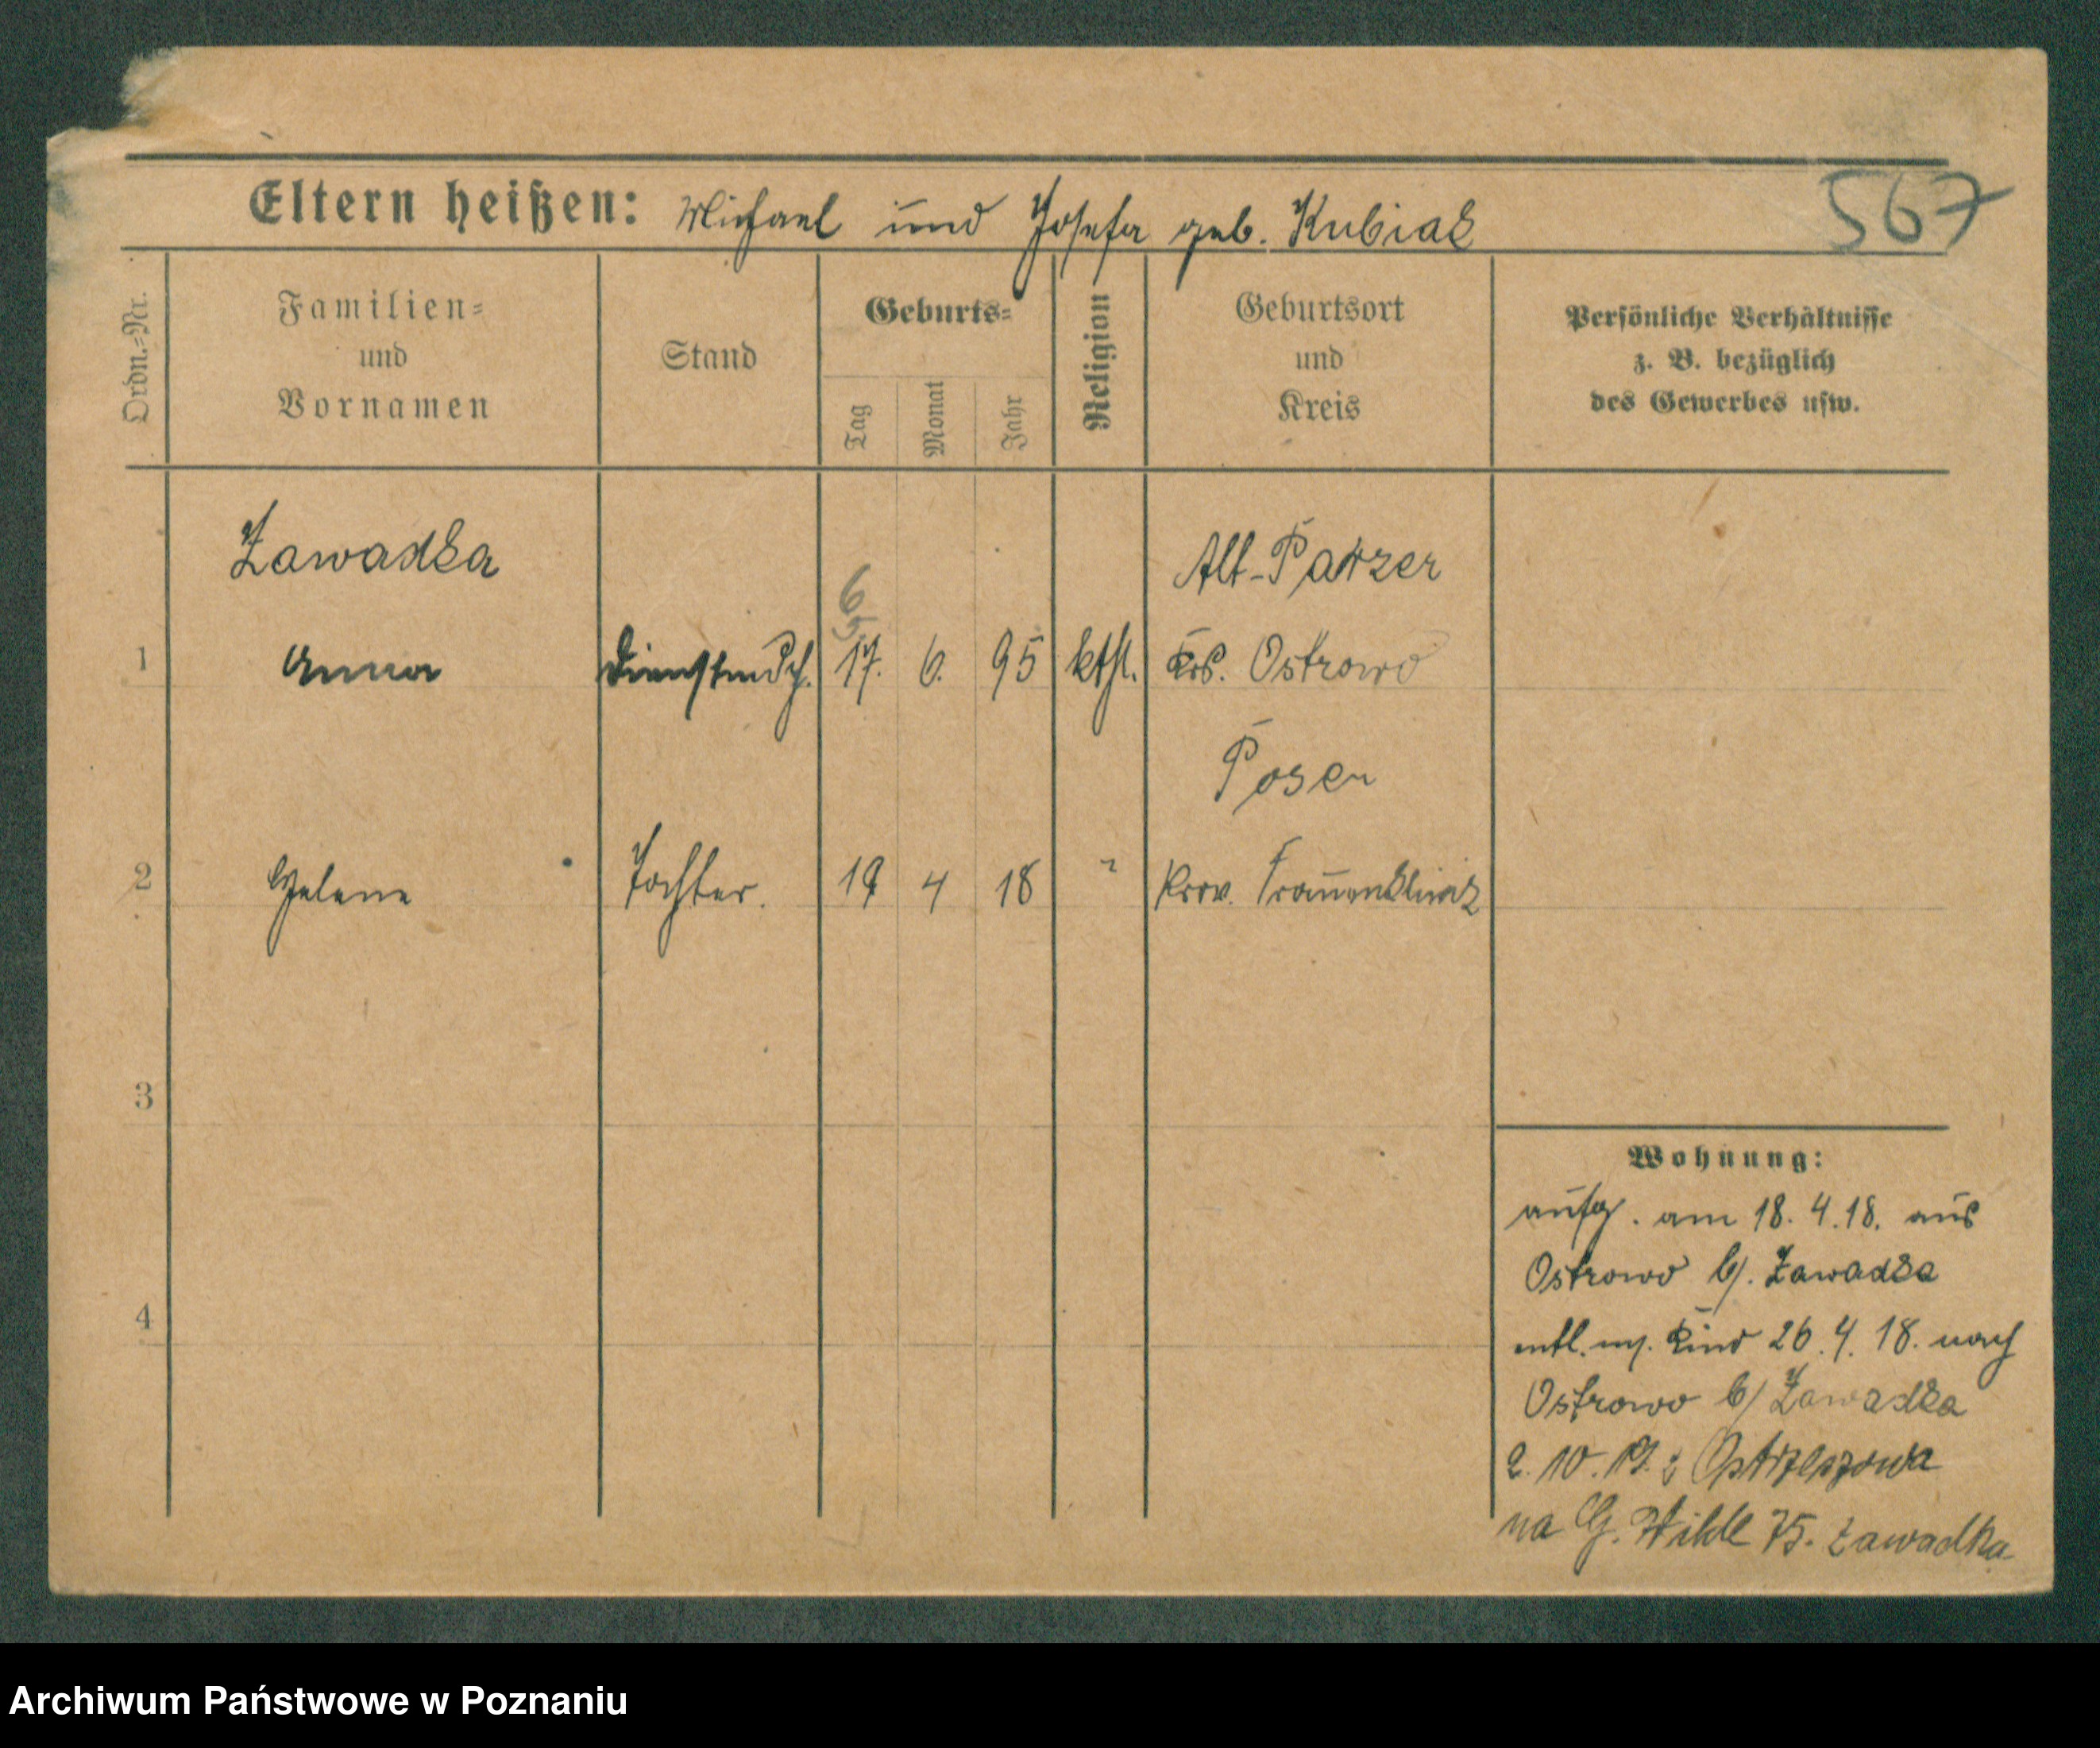 Eltern heißen: Michael und Josefa geb. Kubiak
567
Ordn.-Nr.
Familien-
und
Vornamen
Stand
Geburts-
Tag
Monat
Jahr
Religion
Geburtsort
und
Kreis
Persönliche Verhältnisse
z. B. bezüglich
des Gewerbes usw.
Zawadka
Alt-Parzer
6
5
1 Anna Dienstmdch. 17. 6. 95 kth. Krs. Ostrowo
Posen
2 Helene Tochter. 19 4 18 " Prov. Frauenklinik
3
4
Wohnung:
aufg. am 18. 4. 18. aus
Ostrowo b/. Zawadka
entl. m. Kind 26. 4. 18. nach
Ostrowo b/ Zawadka
2. 10. 19. z Ostrzeszowa
na G. Wilde 75. Zawadka
Archiwum Państwowe w Poznaniu